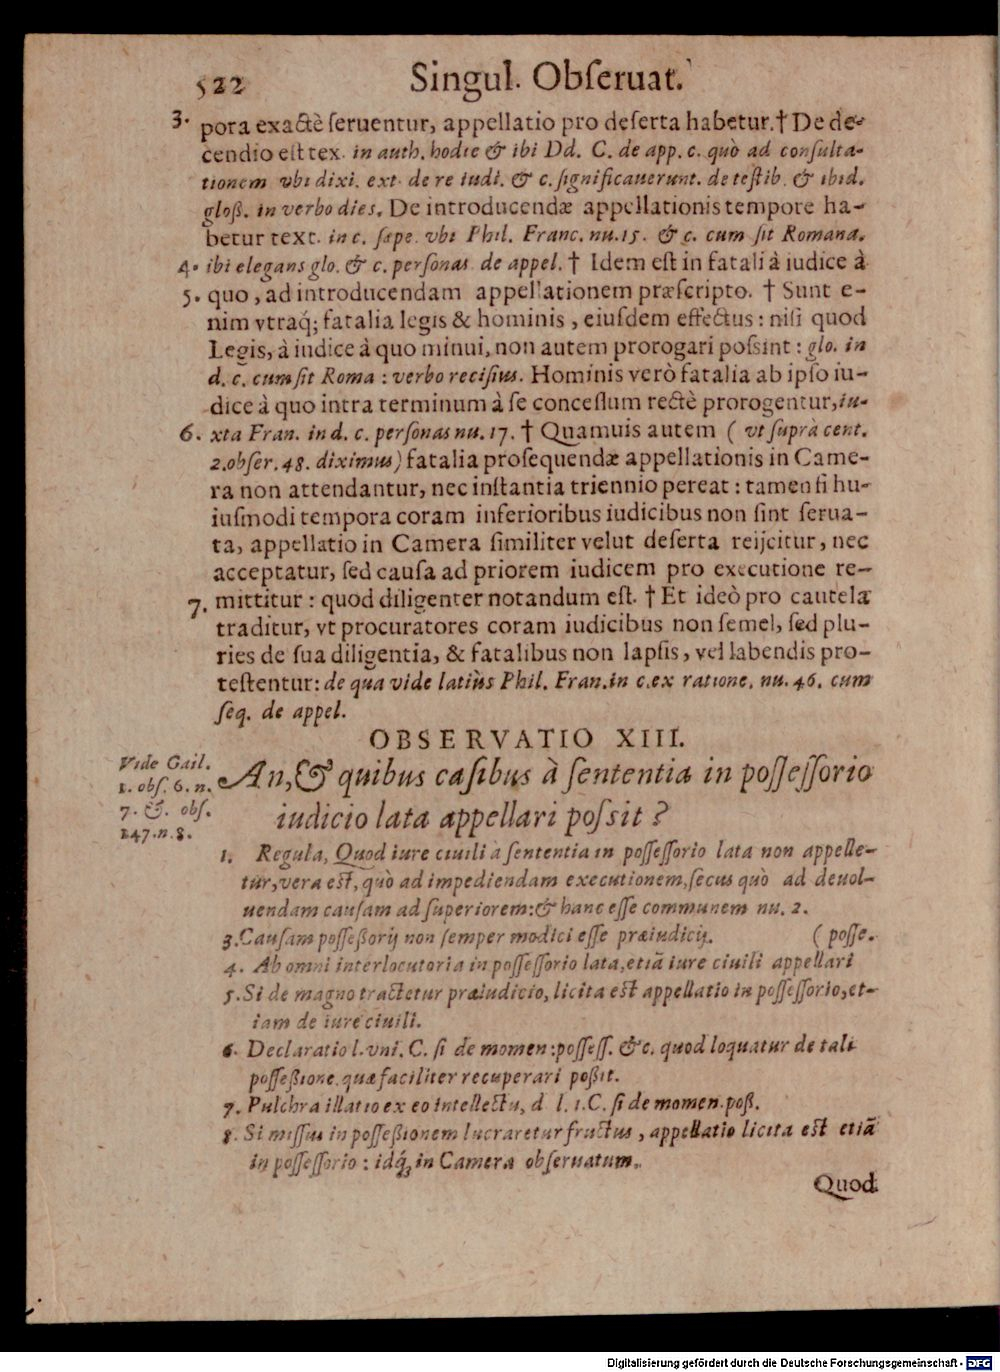 522 Singul. Obſeruat.
3. pora exactè ſeruentur, appellatio pro deſerta habetur.† De de-
cendio eſt tex. in auth. hodie & ibi Dd. C. de app. c. quò ad conſulta-
tionem vbi dixi. ext. de re iudi. & c. ſignificauerunt. de teſtib. & ibid.
gloß. in verbo dies. De introducendæ appellationis tempore ha-
betur text. in c. ſæpe. vbi Phil. Franc. nu. 15. & c. cum ſit Romana.
4. ibi elegans glo. & c. perſonas de appel. † Idem eſt in fatali à iudice à
5. quo, ad introducendam appellationem præſcripto. † Sunt e-
nim vtraq́; fatalia legis & hominis, eiuſdem effectus: niſi quod
Legis, à iudice à quo minui, non autem prorogari poſsint: glo. in
d. c. cum ſit Roma: verbo reciſius. Hominis verò fatalia ab ipſo iu-
dice à quo intra terminum à ſe conceſſum rectè prorogentur, iu-
6. xta Fran. in d. c. perſonas nu. 17. † Quamuis autem ( vt ſuprà cent.
2. obſer. 48. diximus) fatalia proſequendæ appellationis in Came-
ra non attendantur, nec inſtantia triennio pereat: tamen ſi hu-
iuſmodi tempora coram inferioribus iudicibus non ſint ſerua-
ta, appellatio in Camera ſimiliter velut deſerta reijcitur, nec
acceptatur, ſed cauſa ad priorem iudicem pro executione re-
7. mittitur: quod diligenter notandum eſt. † Et ideò pro cautela
traditur, vt procuratores coram iudicibus non ſemel, ſed plu-
ries de ſua diligentia, & fatalibus non lapſis, vel labendis pro-
teſtentur: de qua vide latiùs Phil. Fran. in c. ex ratione. nu. 46. cum
ſeq. de appel.
OBSERVATIO XIII.
Vide Gail.
1. obſ. 6. n.
7. &. obſ.
147. n. 8.
An, & quibus caſibus à ſententia in poſſeſſorio
iudicio lata appellari poſsit?
1. Regula, Quod iure ciuili à ſententia in poſſeſſorio lata non appelle-
tur, vera eſt, quò ad impediendam executionem, ſecus quò ad deuol-
uendam cauſam ad ſuperiorem: & hanc eſſe communem nu. 2.
3. Cauſam poſſeßorij non ſemper modici eſſe præiudicij. ( poſſe.
4. Ab omni interlocutoria in poſſeſſorio lata, etiã iure ciuili appellari
5. Si de magno tractetur præiudicio, licita eſt appellatio in poſſeſſorio, et-
iam de iure ciuili.
6. Declaratio l. vni. C. ſi de momen: poſſeſſ. &c. quod loquatur de tali
poſſeßione, quæ faciliter recuperari poßit.
7. Pulchra illatio ex eo intellectu, d l. 1. C. ſi de momen. poß.
8. Si miſſus in poſſeßionem lucraretur fructus, appellatio licita eſt etiã
in poſſeſſorio: idq́; in Camera obſeruatum.
Quod
Digitalisierung gefördert durch die Deutsche Forschungsgemeinschaft - DFG